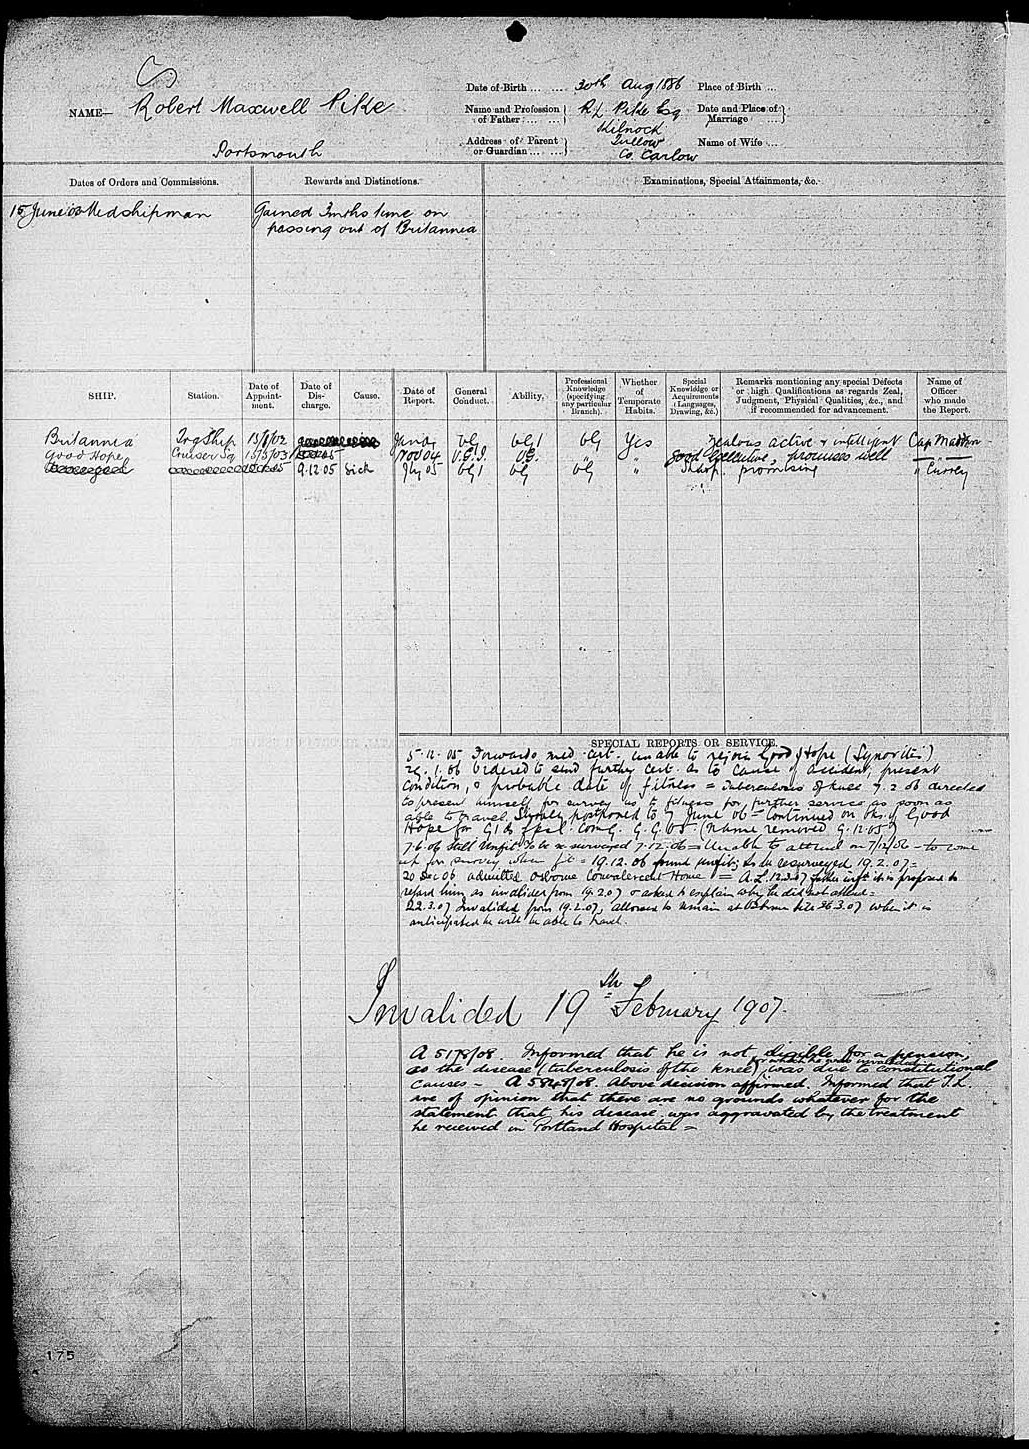 NAME— Robert Maxwell Pike
Portsmouth
Date of Birth ... ... 30th Aug 1886 Place of Birth ...
Name and Profession of Father ... ... R.L. Pike Esq Date and Place of Marriage ...
Address of Parent or Guardian ... ... Kilnock
Tullow
Co. Carlow
Name of Wife ...
Dates of Orders and Commissions. Rewards and Distinctions. Examinations, Special Attainments, &c.
15 June 03 Midshipman Gained 3 mths time on
passing out of Britannia
SHIP. Station. Date of Appointment. Date of Discharge. Cause. Date of Report. General Conduct. Ability. Professional Knowledge (specifying any particular Branch). Whether of Temperate Habits. Special Knowledge or Acquirements (Languages, Drawing, &c.) Remarks mentioning any special Defects or high Qualifications as regards Zeal, Judgment, Physical Qualities, &c., and if recommended for advancement. Name of Officer who made the Report.
Britannia Trg Ship VG VG1 VG Yes Zealous active & intelligent Cap Madden
Good Hope Cruiser Sq 15/5/03 Nov 04 V.G.I. VG. " " good Executive, promises well "
9.12.05 Sick Jly 05 VG1 VG VG " Sharp. promising " Currey
SPECIAL REPORTS OR SERVICE.
5.12.05 Forwards med. cert. unable to rejoin Good Hope (Synovitis)
29.1.06 Ordered to send further cert. as to cause of accident, present
condition, & probable date of fitness = Tuberculosis of knee 9.2.06 directed
to present himself for survey as to fitness for further service as soon as
able to travel. Survey postponed to 7 June 06 = Continued on bks. of Good
Hope for (Name removed 9.12.05)
7.6.06 Still Unfit. To be re surveyed 7.12.06 = Unable to attend on 7/12/06 – to come
up for survey when fit = 19.12.06 found unfit; to be resurveyed 19.2.07 =
20 Dec 06 admitted Osborne Convalescent Home = A.L. 12.3.07 it is proposed to
regard him as invalided from 19.2.07 & asked to explain why he did not attend =
22.3.07 Invalided from 19.2.07, allowed to remain at Osborne till 26.3.07 when it is
anticipated he will be able to travel.
Invalided 19th February 1907.
A 5178/08. Informed that he is not eligible for a pension,
as the disease (tuberculosis of the knee) for which he was invalided was due to constitutional
causes – A 5845/08. Above decision affirmed. Informed that T.L.
are of opinion that there are no grounds whatever for the
statement that his disease was aggravated by the treatment
he received in Portland Hospital =
175